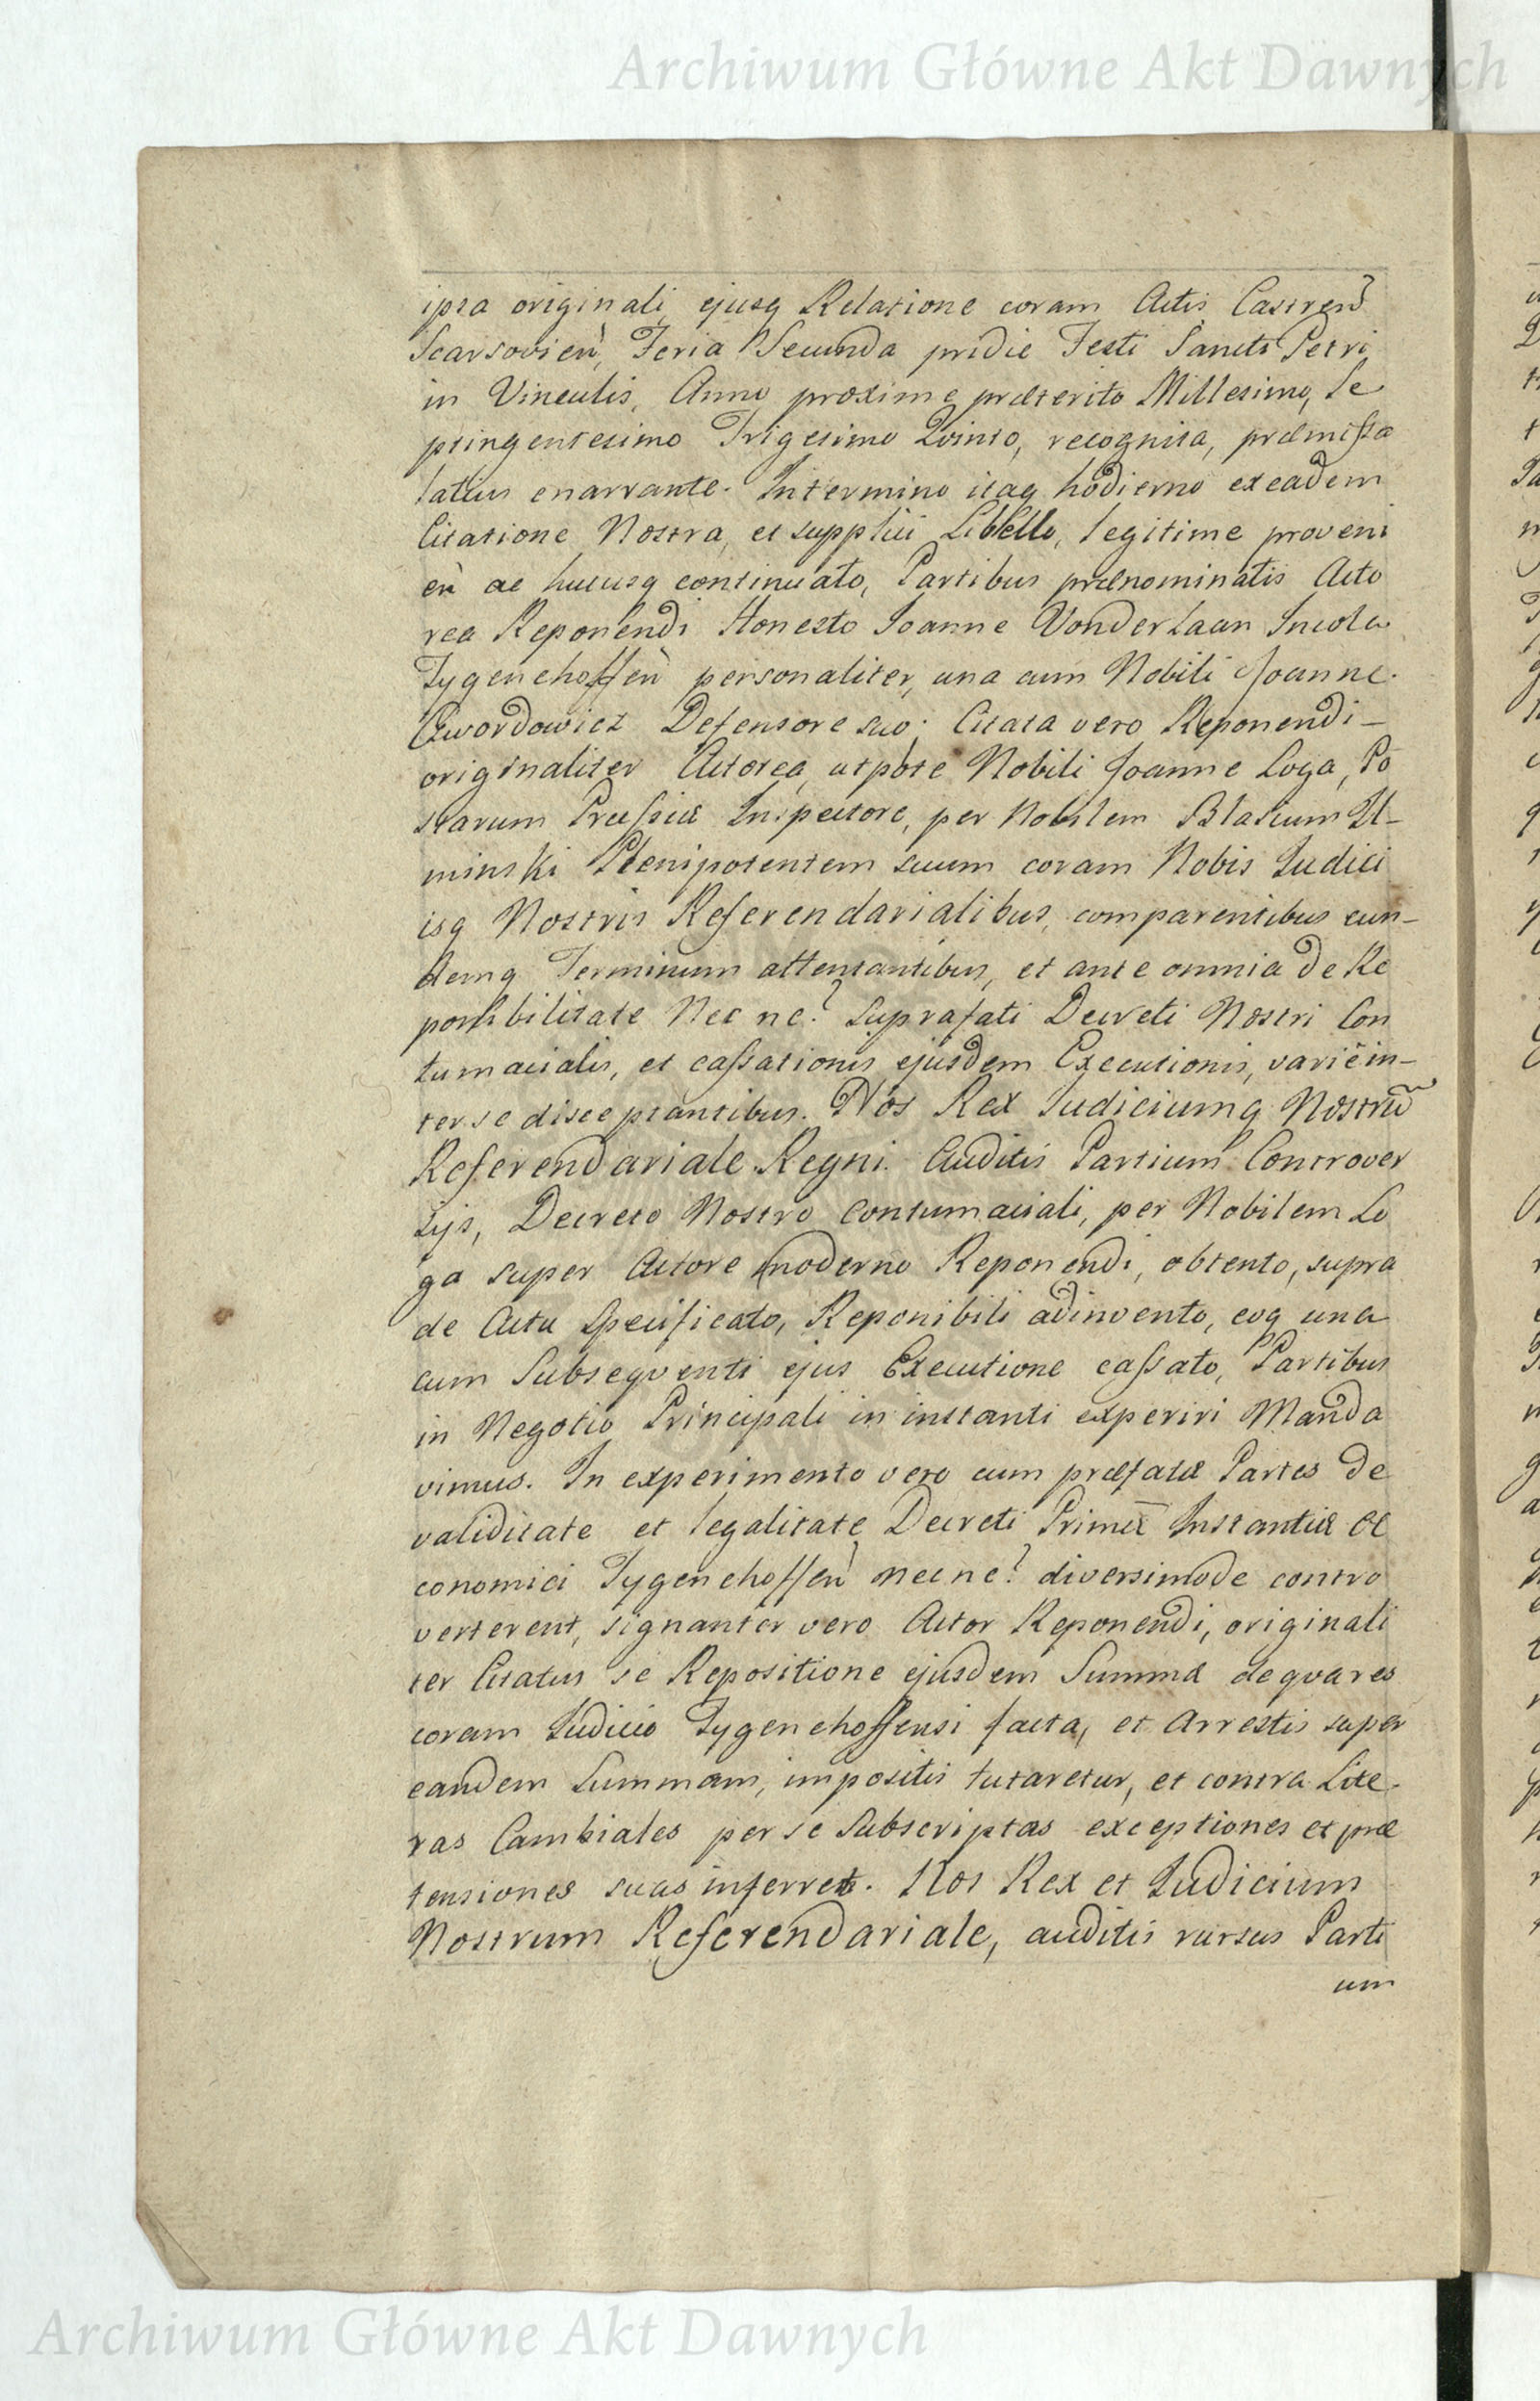 Archiwum Główne Akt Dawnych
ipsa originali ejusq Relatione coram Actis Castren
Scarsovień, Feria Secunda pridie Festi Sancti Petri
in Vinculis, Anno proxime præterito Millesimo, Se
ptingentesimo Trigesimo Qvinto, recognita, præmissa
latius enarrante. In termino itaq hodierno ex eadem
Citatione Nostra, et supplici Libello, legitime proveni
eñ ac hucusq continuato, Partibus prænominatis Acto
rea Reponendi Honesto Joanne Vonderlaan Incola
Tygenehoffeñ personaliter, una cum Nobili Joanne
Gwordowicz Defensore suo; Citata vero Reponendi –
originaliter Actorea, utpote Nobili Joanne Loga, Po
starum Prussiæ Inspectore, per Nobilem Blasium Ił–
minski Plenipotentem suum coram Nobis Iudici
isq Nostris Referendarialibus, comparentibus eun–
demq Terminum attentantibus, et ante omnia de Re
ponibilitate Nec ne? suprafati Decreti Nostri Con
tumacialis, et cassationis ejusdem Executionis, varie in–
ter se disceptantibus. Nos Rex Iudiciumq Nostrũ
Referendariale Regni. Auditis Partium Controver
sijs, Decreto Nostro Contumaciali, per Nobilem Lo
ga super Actore moderno Reponendi, obtento, supra
de Actu Specificato, Reponibili adinvento, eoq una
cum Subseqventi ejus Executione cassato, Partibus
in Negotio Principali in instanti experiri Manda
vimus. In experimento vero cum præfatæ Partes de
validitate et legalitate Decreti Primæ Instantiæ Œ
conomici Tygenehoffeñ nec ne? diversimode contro
verterent, signanter vero Actor Reponendi, originali
ter Citatus se Repositione ejusdem Summæ de qva res
coram Iudicio Tygenehoffensi facta, et Arrestis super
eandem Summam, impositis tutaretur, et contra Lite
ras Cambiales per se Subscriptas exceptiones et præ
tensiones suas inferret. Nos Rex et Iudicium
Nostrum Referendariale, auditis rursus Parti
um
Archiwum Główne Akt Dawnych